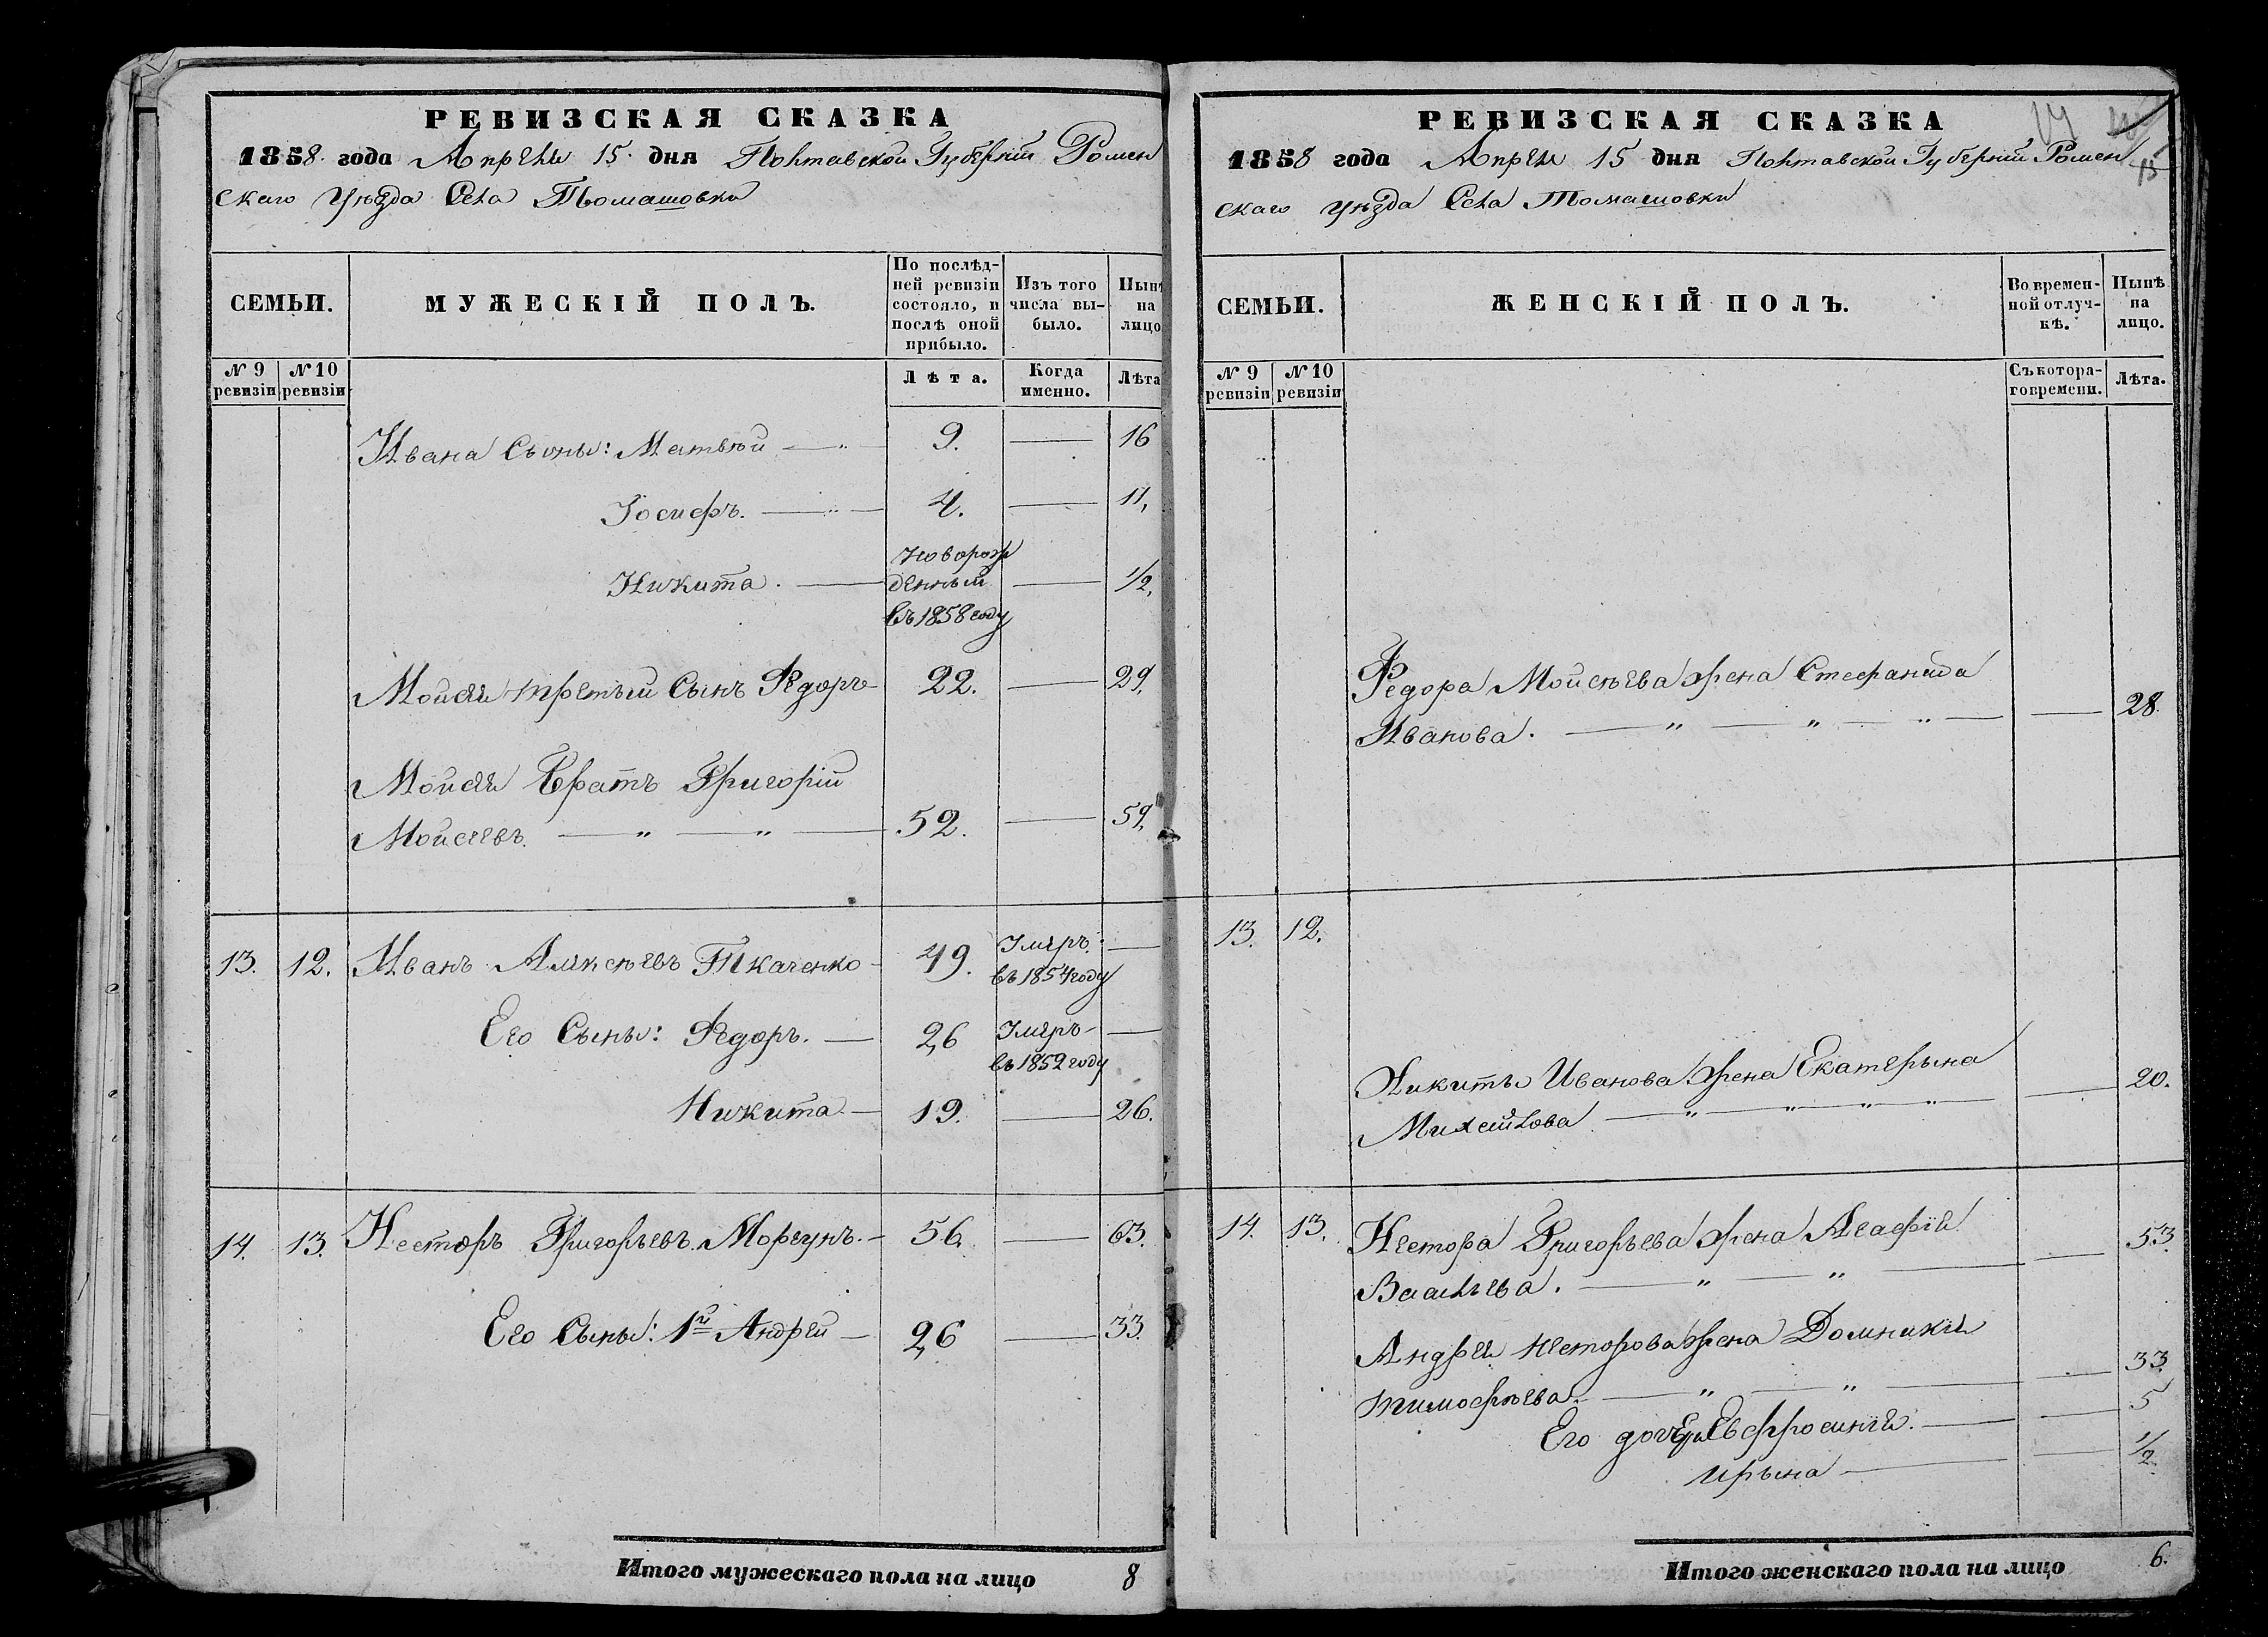 РЕВИЗСКАЯ СКАЗКА
1858. года Апреля 15. дня Полтавской Губерніи Ромен
скаго Уѣзда Села Томашовки
СЕМЬИ.
МУЖЕСКІЙ ПОЛЪ.
По послѣд-
ней ревизіи
состояло, и
послѣ оной
прибыло.
Изъ того
числа вы-
было.
Нынѣ
на
лицо
№ 9
ревизіи
№ 10
ревизіи
Лѣта.
Когда
именно.
Лѣта
Ивана Сыны: Матвѣй 9. 16
Іосифъ. 4. 11,
Никита.Новорож
денный
въ 1858 году 1/2,
Мойсея третый Сынъ Федоръ 22. 29,
Мойсея Братъ Григорій
Мойсеевъ. 52. 59,
13. 12. Иванъ Алексѣевъ Ткаченко 49. Умеръ
въ 1854 году
Его Сыны: Федоръ. 26 Умеръ
въ 1852 году
Никита 19. 26.
14. 13. Несторъ Григорьевъ Моргунъ. 56. 63.
Его Сыны: 1й Андрей 26 33.
Итого мужескаго пола на лицо 8
РЕВИЗСКАЯ СКАЗКА
1858 года Апреля 15 дня Полтавской Губерніи Ромен
скаго Уѣзда Села Томашовки
15
СЕМЬИ.
ЖЕНСКІЙ ПОЛЪ.
Во времен-
ной отлуч-
кѣ.
Нынѣ
на
лицо.
№ 9
ревизіи
№ 10
ревизіи
Съ котора-
го времени.
Лѣта.
Федора Мойсѣева жена Стефанида
Иванова. 28.
13. 12.
Никиты Иванова жена Екатерына
Михайлова 20.
14. 13. Нестора Григорьева жена Агафія
Васильева. 53.
Андрея Несторова жена Домникія
Тимофѣева. 33.
Его дочери Евфросинія. 5
Ирына 1/2.
Итого женскаго пола на лицо 6.